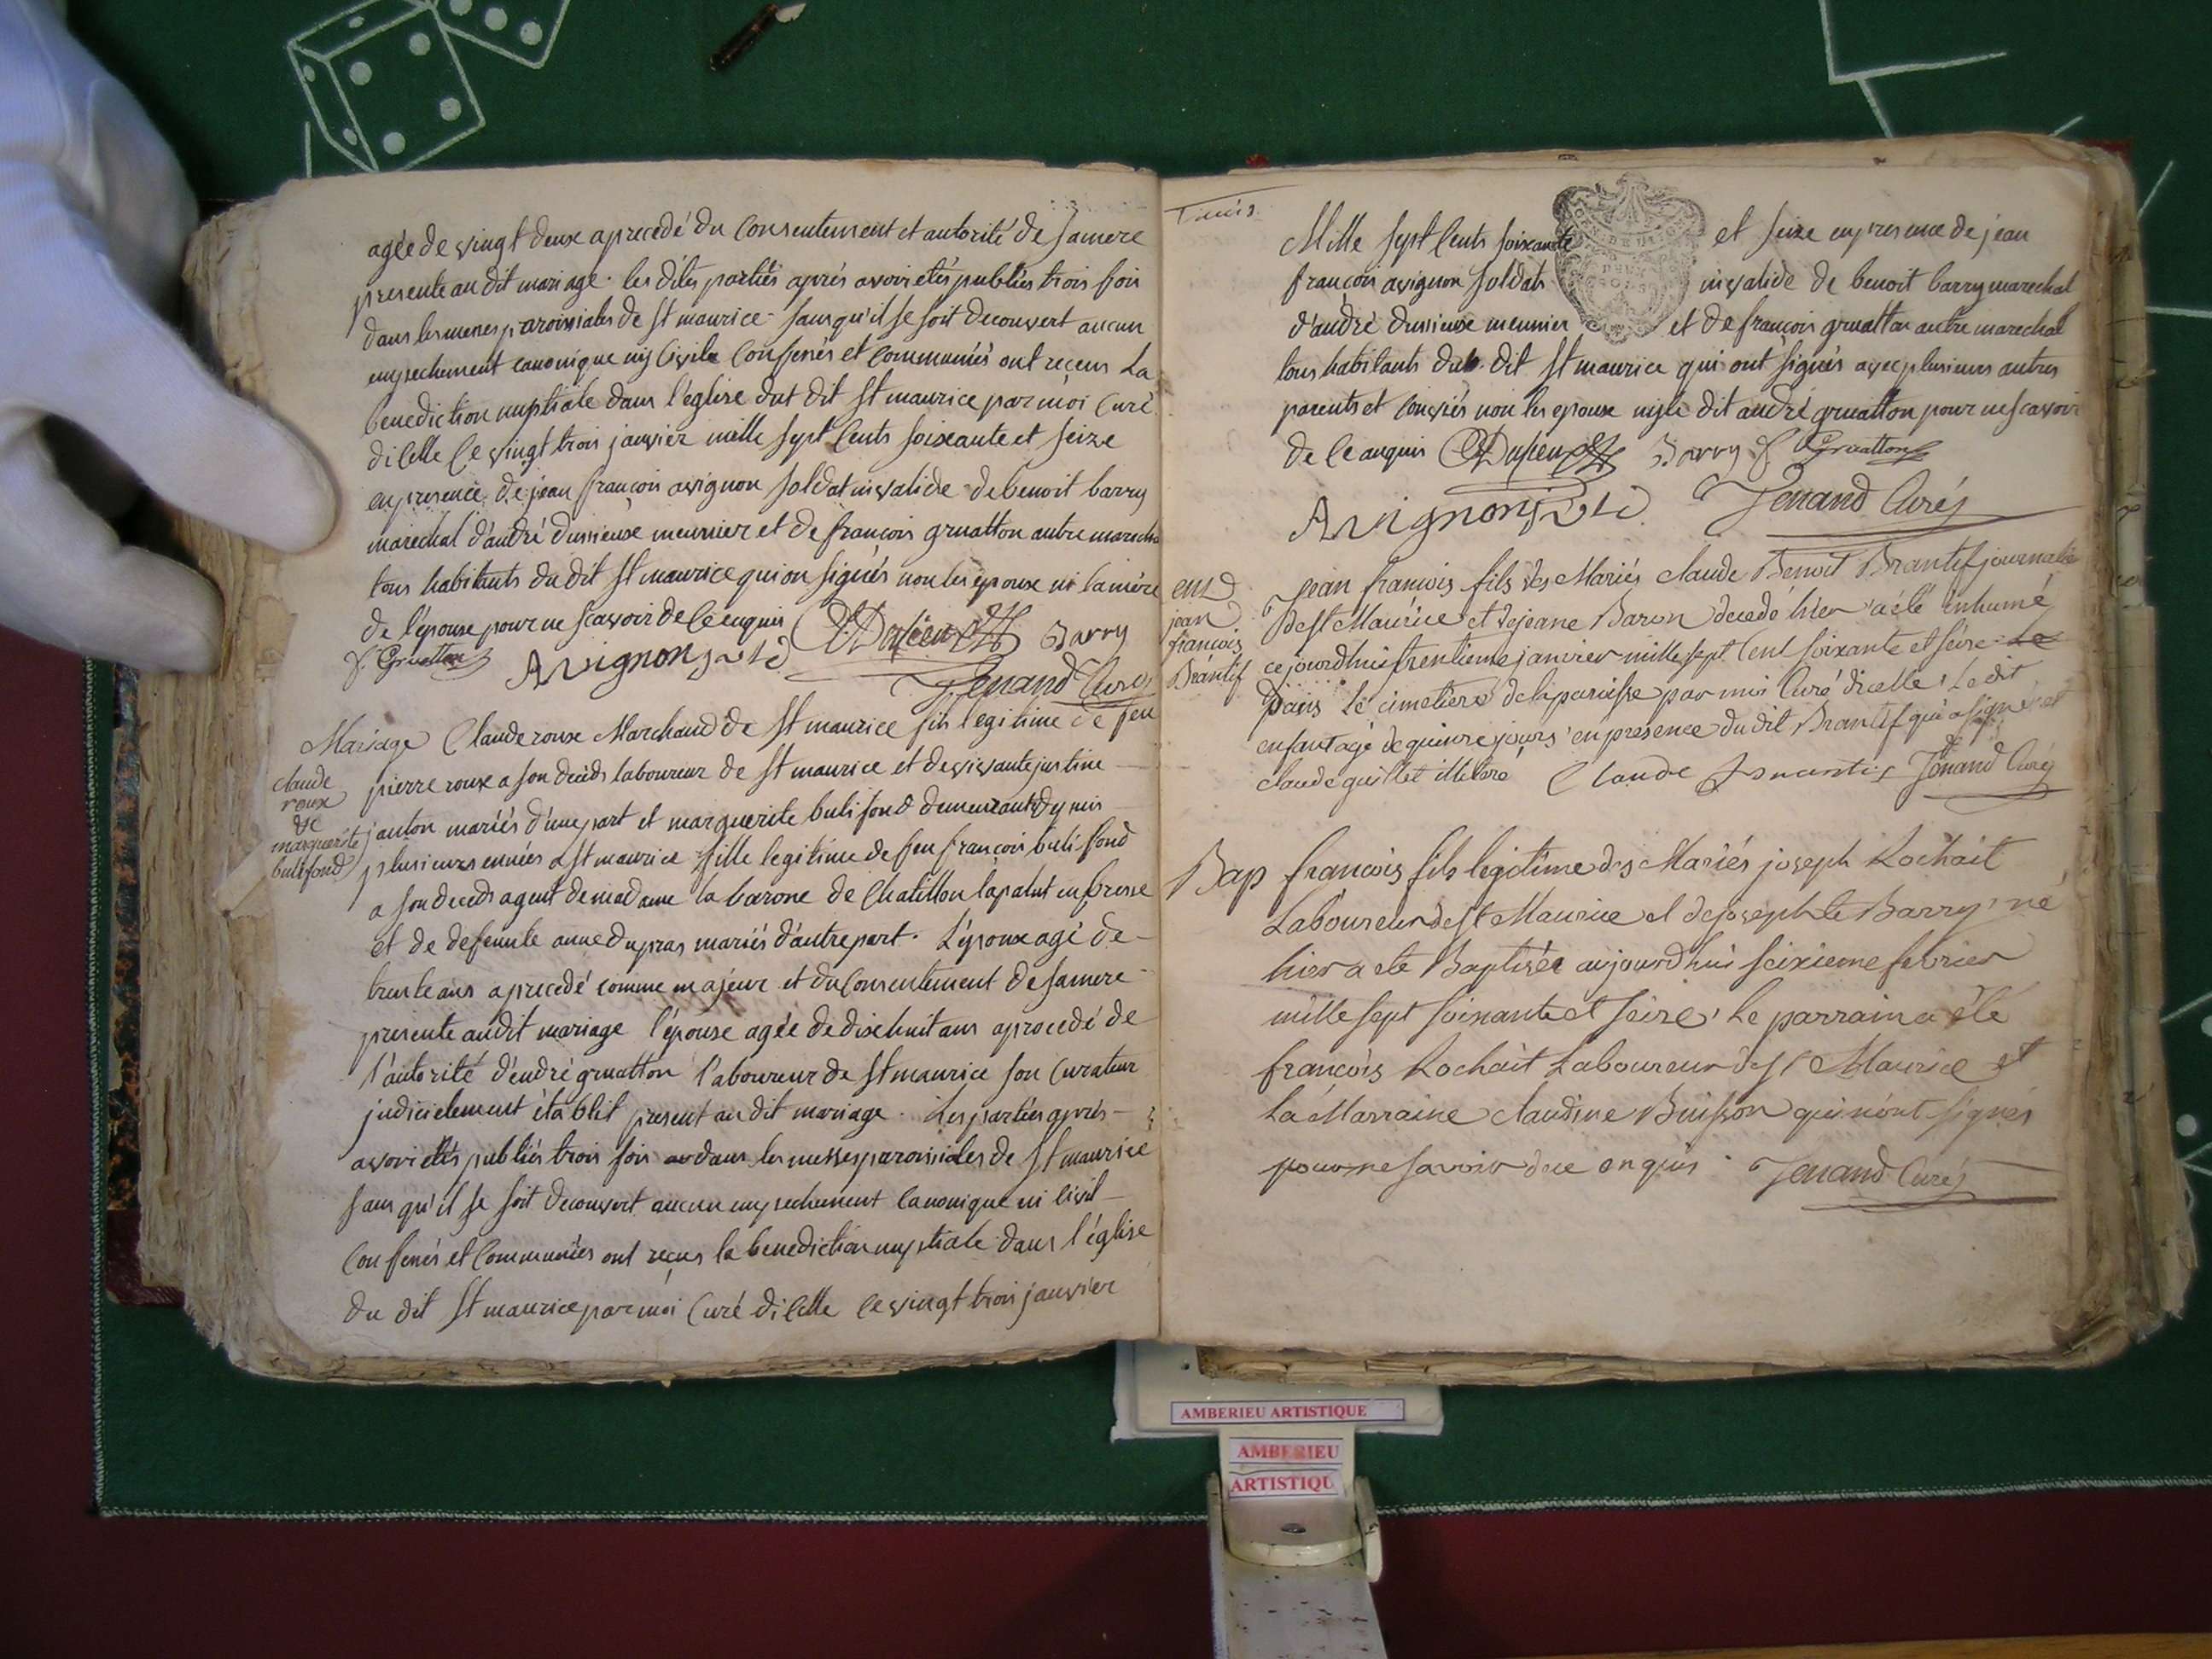 agée de vingt deux a procedé du consentement et autorité de sa mere
presente au dit mariage. les dites parties aprés avoir etés publiés trois fois
dans les messes paroissiales de st maurice sans qu'il se soit decouvert aucun
empechement canonique ny civile confessés et communiés ont reçeus La
benediction nuptiale dans l'église dut dit st maurice par moi Curé
dicelle le vingt trois janvier mille sept cents soixante et seize
en presence de jean françois avignon soldat invalide de benoit barry
marechal d'andré dussieuse meunier et de françois gruatton autre marechal
tous habitants du dit st maurice qui on signés non les epoux ni la mère
de l'épouse pour ne scavoir de ce enquis Barry
f. Gruatton Avignon
Jenand Curé
Mariage Claude roux Marchand de st maurice fils legitime de feu
claude roux & marguerite bulifond
pierre roux a son decéds laboureur de st maurice et de vivante justine
janton mariés d'une part et marguerite bulifond demeurante depuis
plusieurs ennées a st maurice fille legitime de feu françois bulifond
a son deceds agent de madame la barone de Chatillon lapalut en bresse
et de defeunte anne dupras mariés d'autre part. L'époux agé de
trente ans a procedé comme majeur et du consentement de sa mere
presente au dit mariage l'épouse agée de dixehuit ans a procedé de
l'autorité d'endré gruatton l'aboureur de st maurice son Curateur
judicielement établit present au dit mariage. Les parties aprés
avoir etés publiés trois fois dans les messes paroissiales de st maurice
sans qu'il se soit decouvert aucun empechement canonique ni civil
confessés et communiés ont reçus la benediction nuptiale dans l'église
du dit st maurice par moi Curé dicelle le vingt trois janvier
Mille sept cents soixante et seize en presence de jean
françois avignon soldats invalide de benoit barry marechal
d'andré dussieuse meunier et de françois gruatton autre marechal
tous habitants du dit st maurice qui ont signés avec plusieurs autres
parents et conviés non les epoux ny le dit andré gruatton pour ne scavoir
de ce anquis Barry f. Gruatton
Avignon Jenand Curé
jean françois Brantif
jean françois fils des Mariés claude Benoit Brantif journalier
de st Maurice et de jeane Baron decedé hier a été inhumé
ce jourdhui trentieme janvier mille sept cent soixante et seize
dans le cimetiere de la paroisse par moi Curé dicelle, Le dit
enfant agé de quinze jours en presence du dit Brantif qui a signé et
claude guillet illitéré Claude Jenand Curé
Bap françois fils legitime des Mariés joseph Rochait
Laboureur de st Maurice et de josephte Barry né
hier a eté Baptisée aujourdhui seixieme febvrier
mille sept soixante et seize, Le parrain a été
françois Rochait Laboureur de st Maurice et
La Marraine claudine Buisson qui n'ont signés
pour ne savoir de ce enquis. Jenand Curé
AMBERIEU ARTISTIQUE
AMBERIEU
ARTISTIQU